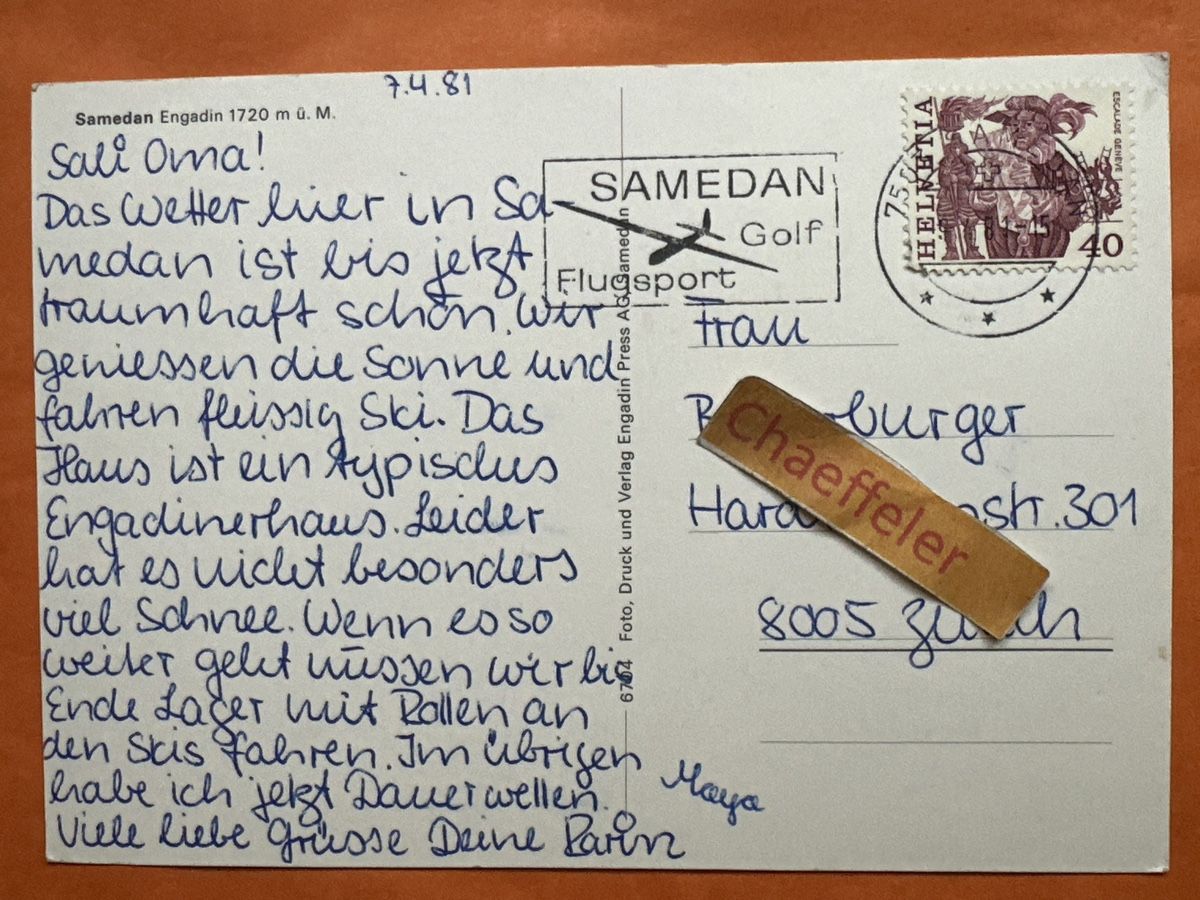 7.4.81
Samedan Engadin 1720 m ü. M.
Sali Oma!
Das Wetter hier in Sa-
medan ist bis jetzt
traumhaft schön. Wir
geniessen die Sonne und
fahren fleissig Ski. Das
Haus ist ein typisches
Engadinerhaus. Leider
hat es nicht besonders
viel Schnee. Wenn es so
weiter geht müssen wir bis
Ende Lager mit Rollen an
den Skis fahren. Im übrigen
habe ich jetzt Dauerwellen.
Viele liebe Grüsse Deine Karin
Maya
6704 Foto, Druck und Verlag Engadin Press AG Samedan
SAMEDAN
Golf
Flugsport
HELVETIA
ESCALADE GENÈVE
40
Frau
burger
str. 301
8005
Chaeffeler